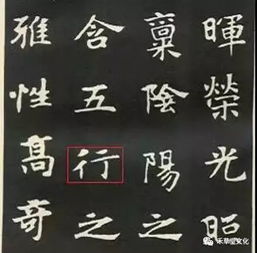 暉榮光照
稟陰陽之
含五行之
雅性高奇
禾草堂文化